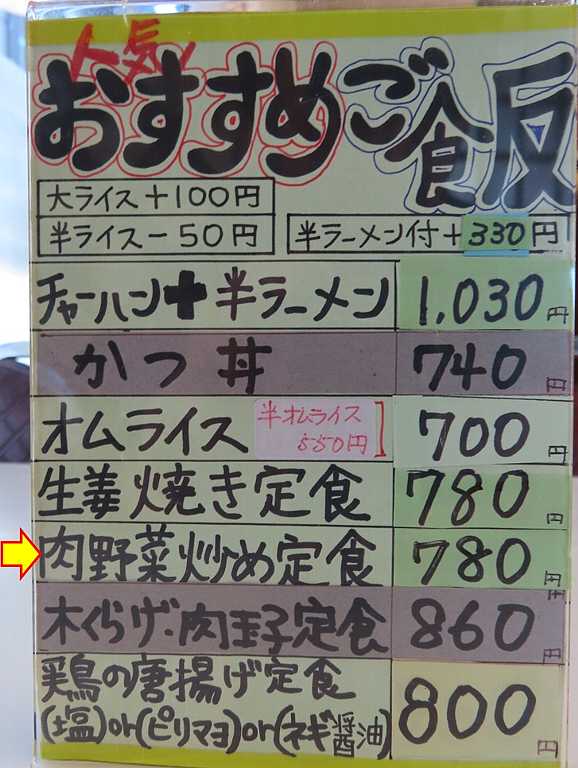 人気!
おすすめご飯
大ライス+100円
半ライス-50円 半ラーメン付+330円
チャーハン+半ラーメン 1,030円
かつ丼 740円
オムライス 半オムライス 550円 700円
生姜焼き定食 780円
肉野菜炒め定食 780円
木くらげ・肉玉子定食 860円
鶏の唐揚げ定食
(塩)or(ピリマヨ)or(ネギ醤油) 800円